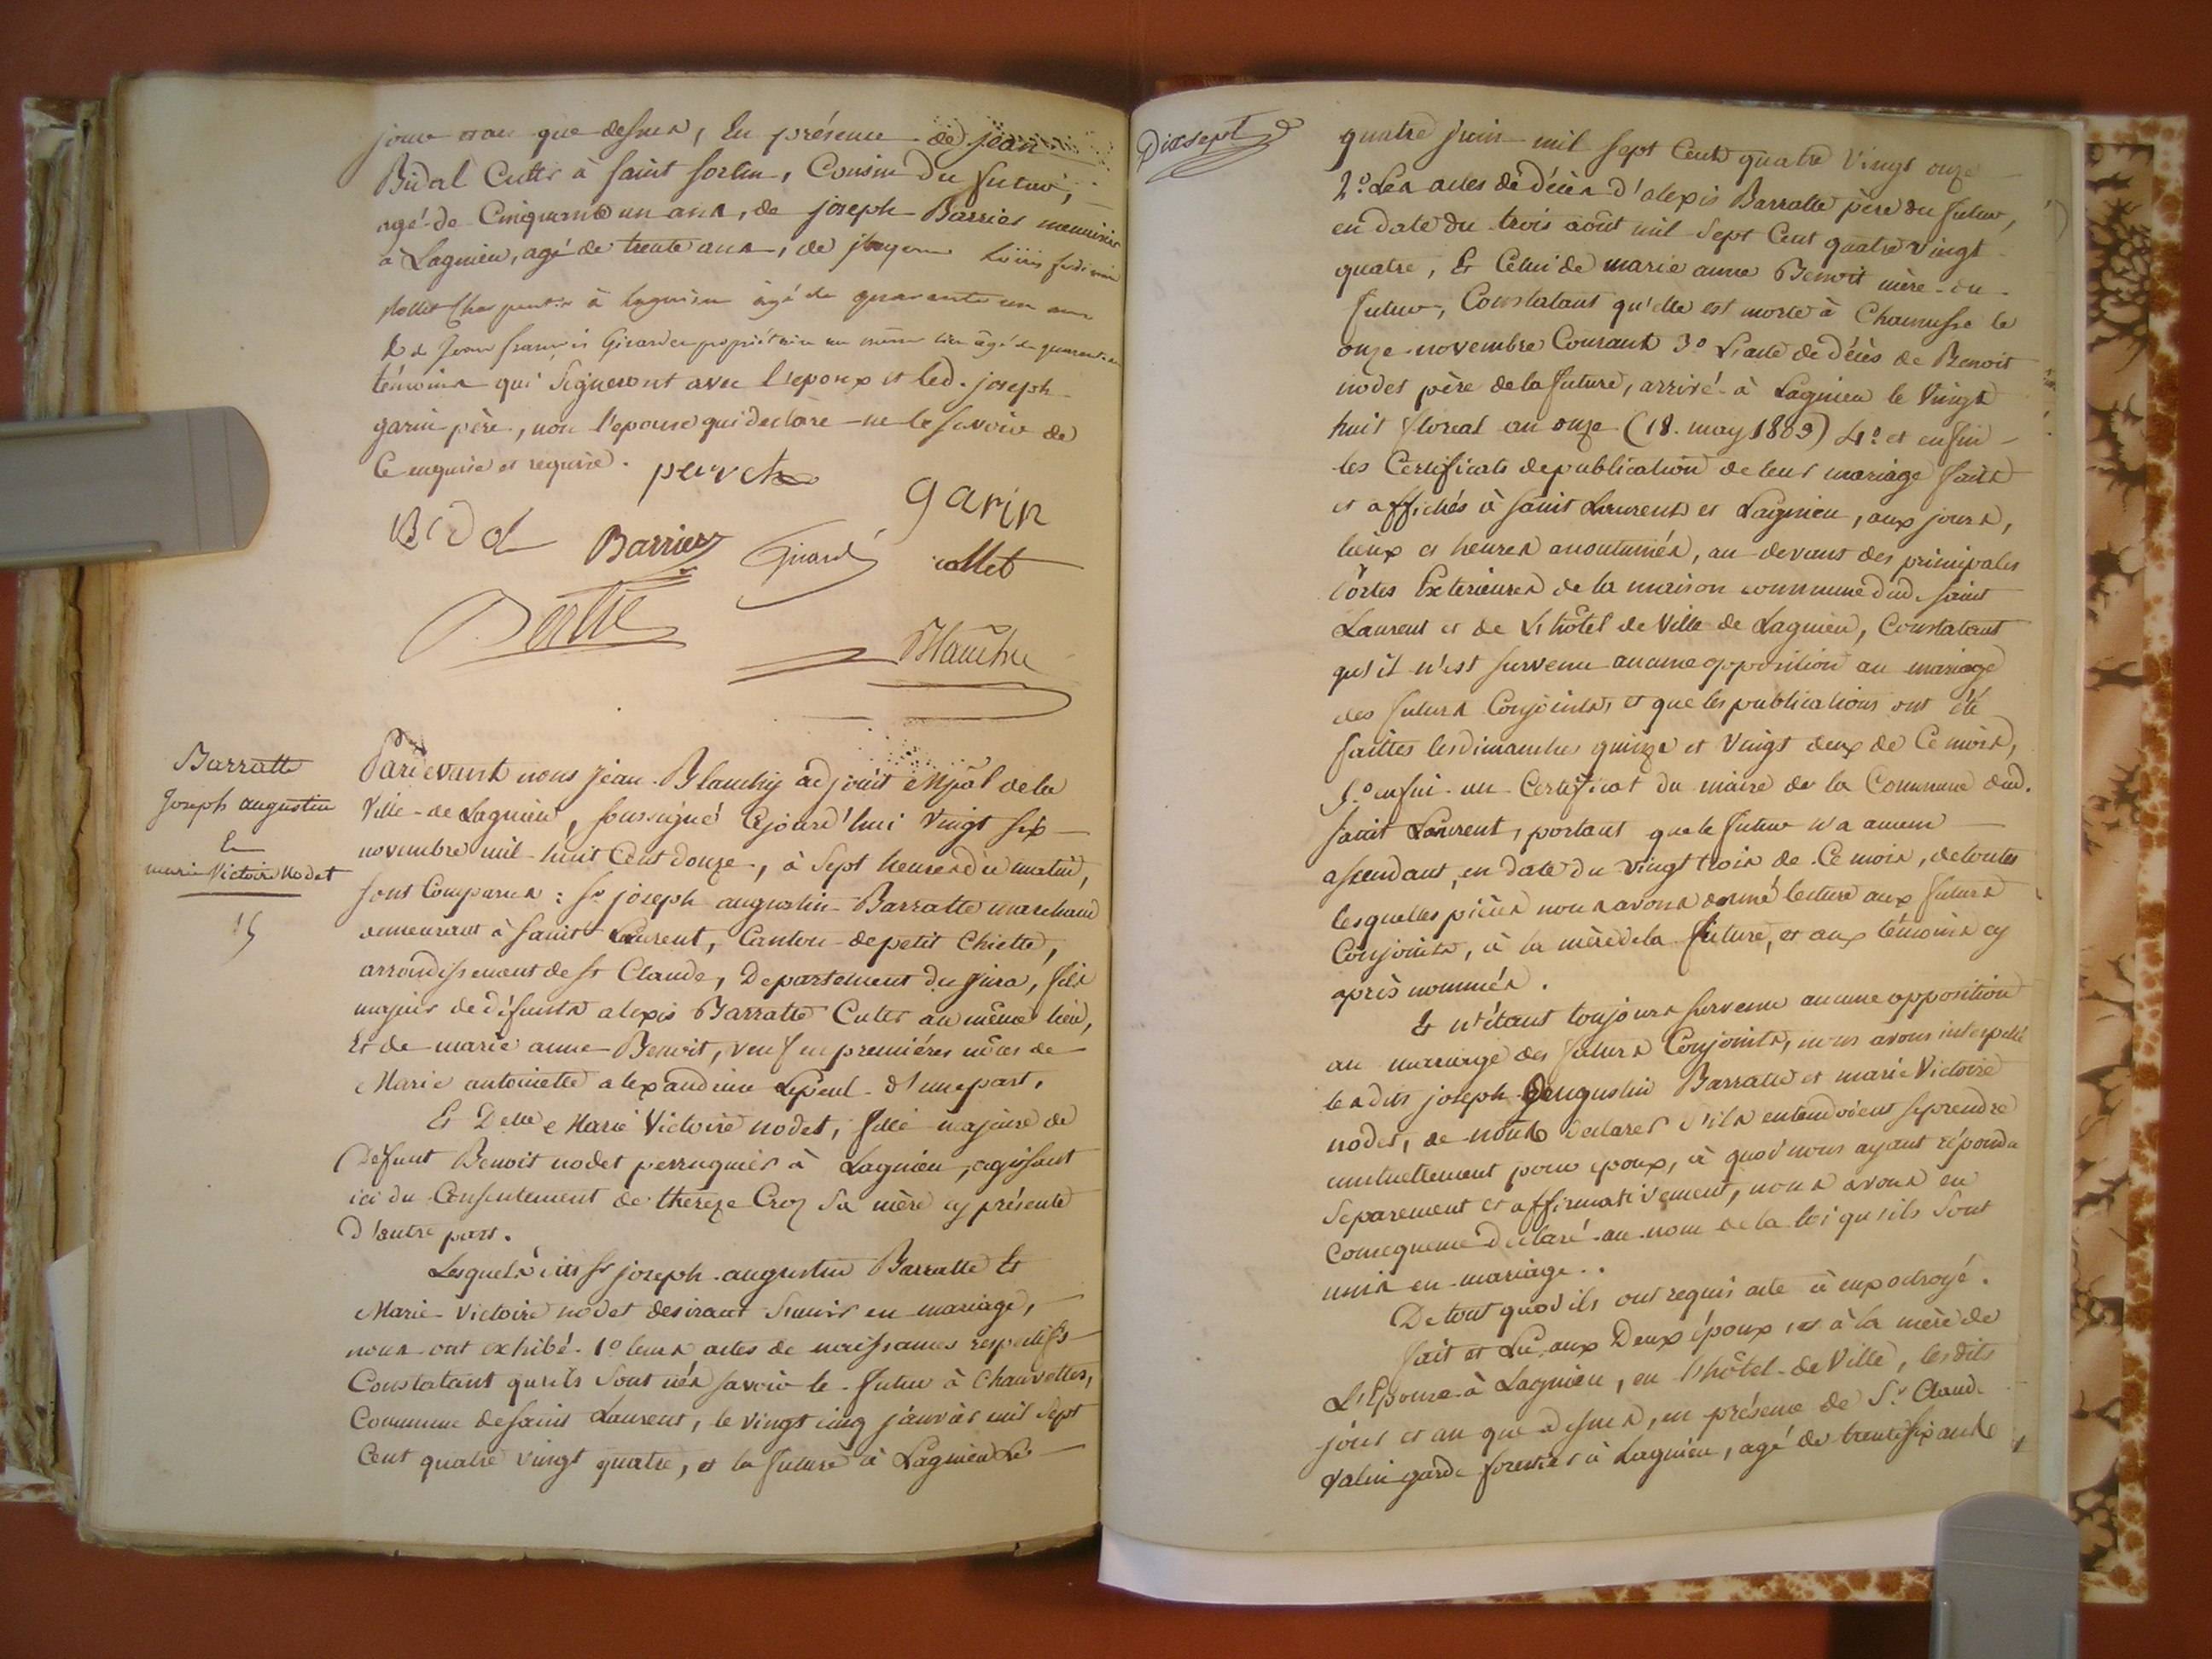 jour et an que dessus, En présence de jean
Bidal Cultr à saint sorlin, Cousin du futur,
agé de Cinquante un ans, de joseph Barrier menuisier
à Lagnieu, agé de trente ans, de
Collet Charpentier à lagnieu âgé de quarante un ans
& de Jean françois Girard propriétaire au même lieu âgé de quarante
témoins qui signeront avec l'epoux et led. joseph
garin père, non l'epouse qui declare ne le savoir de
Ce enquise et requise.
garin
Bidal Barrier Girard collet
Blanchy
Barratte
Joseph augustin
&
marie Victoire Nodet
15
Pardevant nous Jean Blanchy adjoint mpal de la
Ville de Lagnieu, soussigné Cejourd'hui Vingt six
novembre mil huit Cent douze, à Sept heures du matin,
sont Comparus : Sr joseph augustin Barratte marchand
demeurant à saint Laurent, Canton de petit Chiette,
arrondissement de St Claude, Departement du jura, fils
majeur de défunts alexis Barratte Cultr au même lieu,
Et de marie anne Benoit, veuf en premiéres nôces de
Marie antoinette alexandrine Lepeul d'une part,
Et Delle Marie Victoire nodet, fille majeure de
Defunt Benoit nodet perruquier à Lagnieu, agissant
ici du Consentement de thereze Croz Sa mère cy présente
D'autre part.
Lesquels dits Sr joseph augustin Barratte Et
Marie Victoire nodet desirant S'unir en mariage,
nous ont exhibé 1º leurs actes de naissances respectifs
Constatant qu'ils Sont nés savoir le futur à Chauvettes,
Commune de saint Laurent, le vingt cinq janvier mil Sept
Cent quatre vingt quatre, et la future à Lagnieu Le
Dixsept
quatre juin mil sept Cent quatre Vingt onze
2º Les actes de décès d'alexis Barratte père du futur,
en date du trois août mil Sept Cent quatre Vingt
quatre, Et Celui de marie anne Benoit mère du
futur, Constatant qu'elle est morte à le
onze novembre Courant 3º L'acte de décès de Benoit
nodet père de la future, arrivé à Lagnieu le Vingt
huit floréal an onze (18. may 1803) 4º et enfin
les Certificats de publication de leur mariage faits
et affichés à saint Laurent et Lagnieu, aux jours,
lieux et heures accoutumés, au devant des principales
Portes Exterieures de la maison commune dud. saint
Laurent et de L'hôtel de Ville de Lagnieu, Constatant
qu'il n'est survenu aucune opposition au mariage
des futurs Conjoints et que les publications ont été
faittes les dimanches quinze et Vingt deux de Ce mois,
5º enfin un Certificat du maire de la Commune dud.
saint Laurent, portant que le futur n'a aucun
ascendant, en date du vingt trois de Ce mois, de toutes
lesquelles pièces nous avons donné lecture aux futurs
Conjoints, à la mère de la future, et aux témoins cy
après nommés.
Et n'étant toujours survenu aucune opposition
au mariage des futurs Conjoints, nous avons interpellé
lesdits joseph augustin Barratte et marie Victoire
nodet, de nous declarer s'ils entendoient se prendre
mutuellement pour epoux, à quoi nous ayant répondu
Séparement et affirmativement, nous avons en
Consequence declaré au nom de la loi qu'ils Sont
unis en mariage.
De tout quoi ils ont requis acte à eux octroyé.
fait et Lu aux Deux époux et à la mère de
L'Epouse à Lagnieu, en L'hôtel de Ville, lesdits
jour et an que dessus, en présence de Sr. Claude
valin garde forestier à Lagnieu, agé de trente six ans de